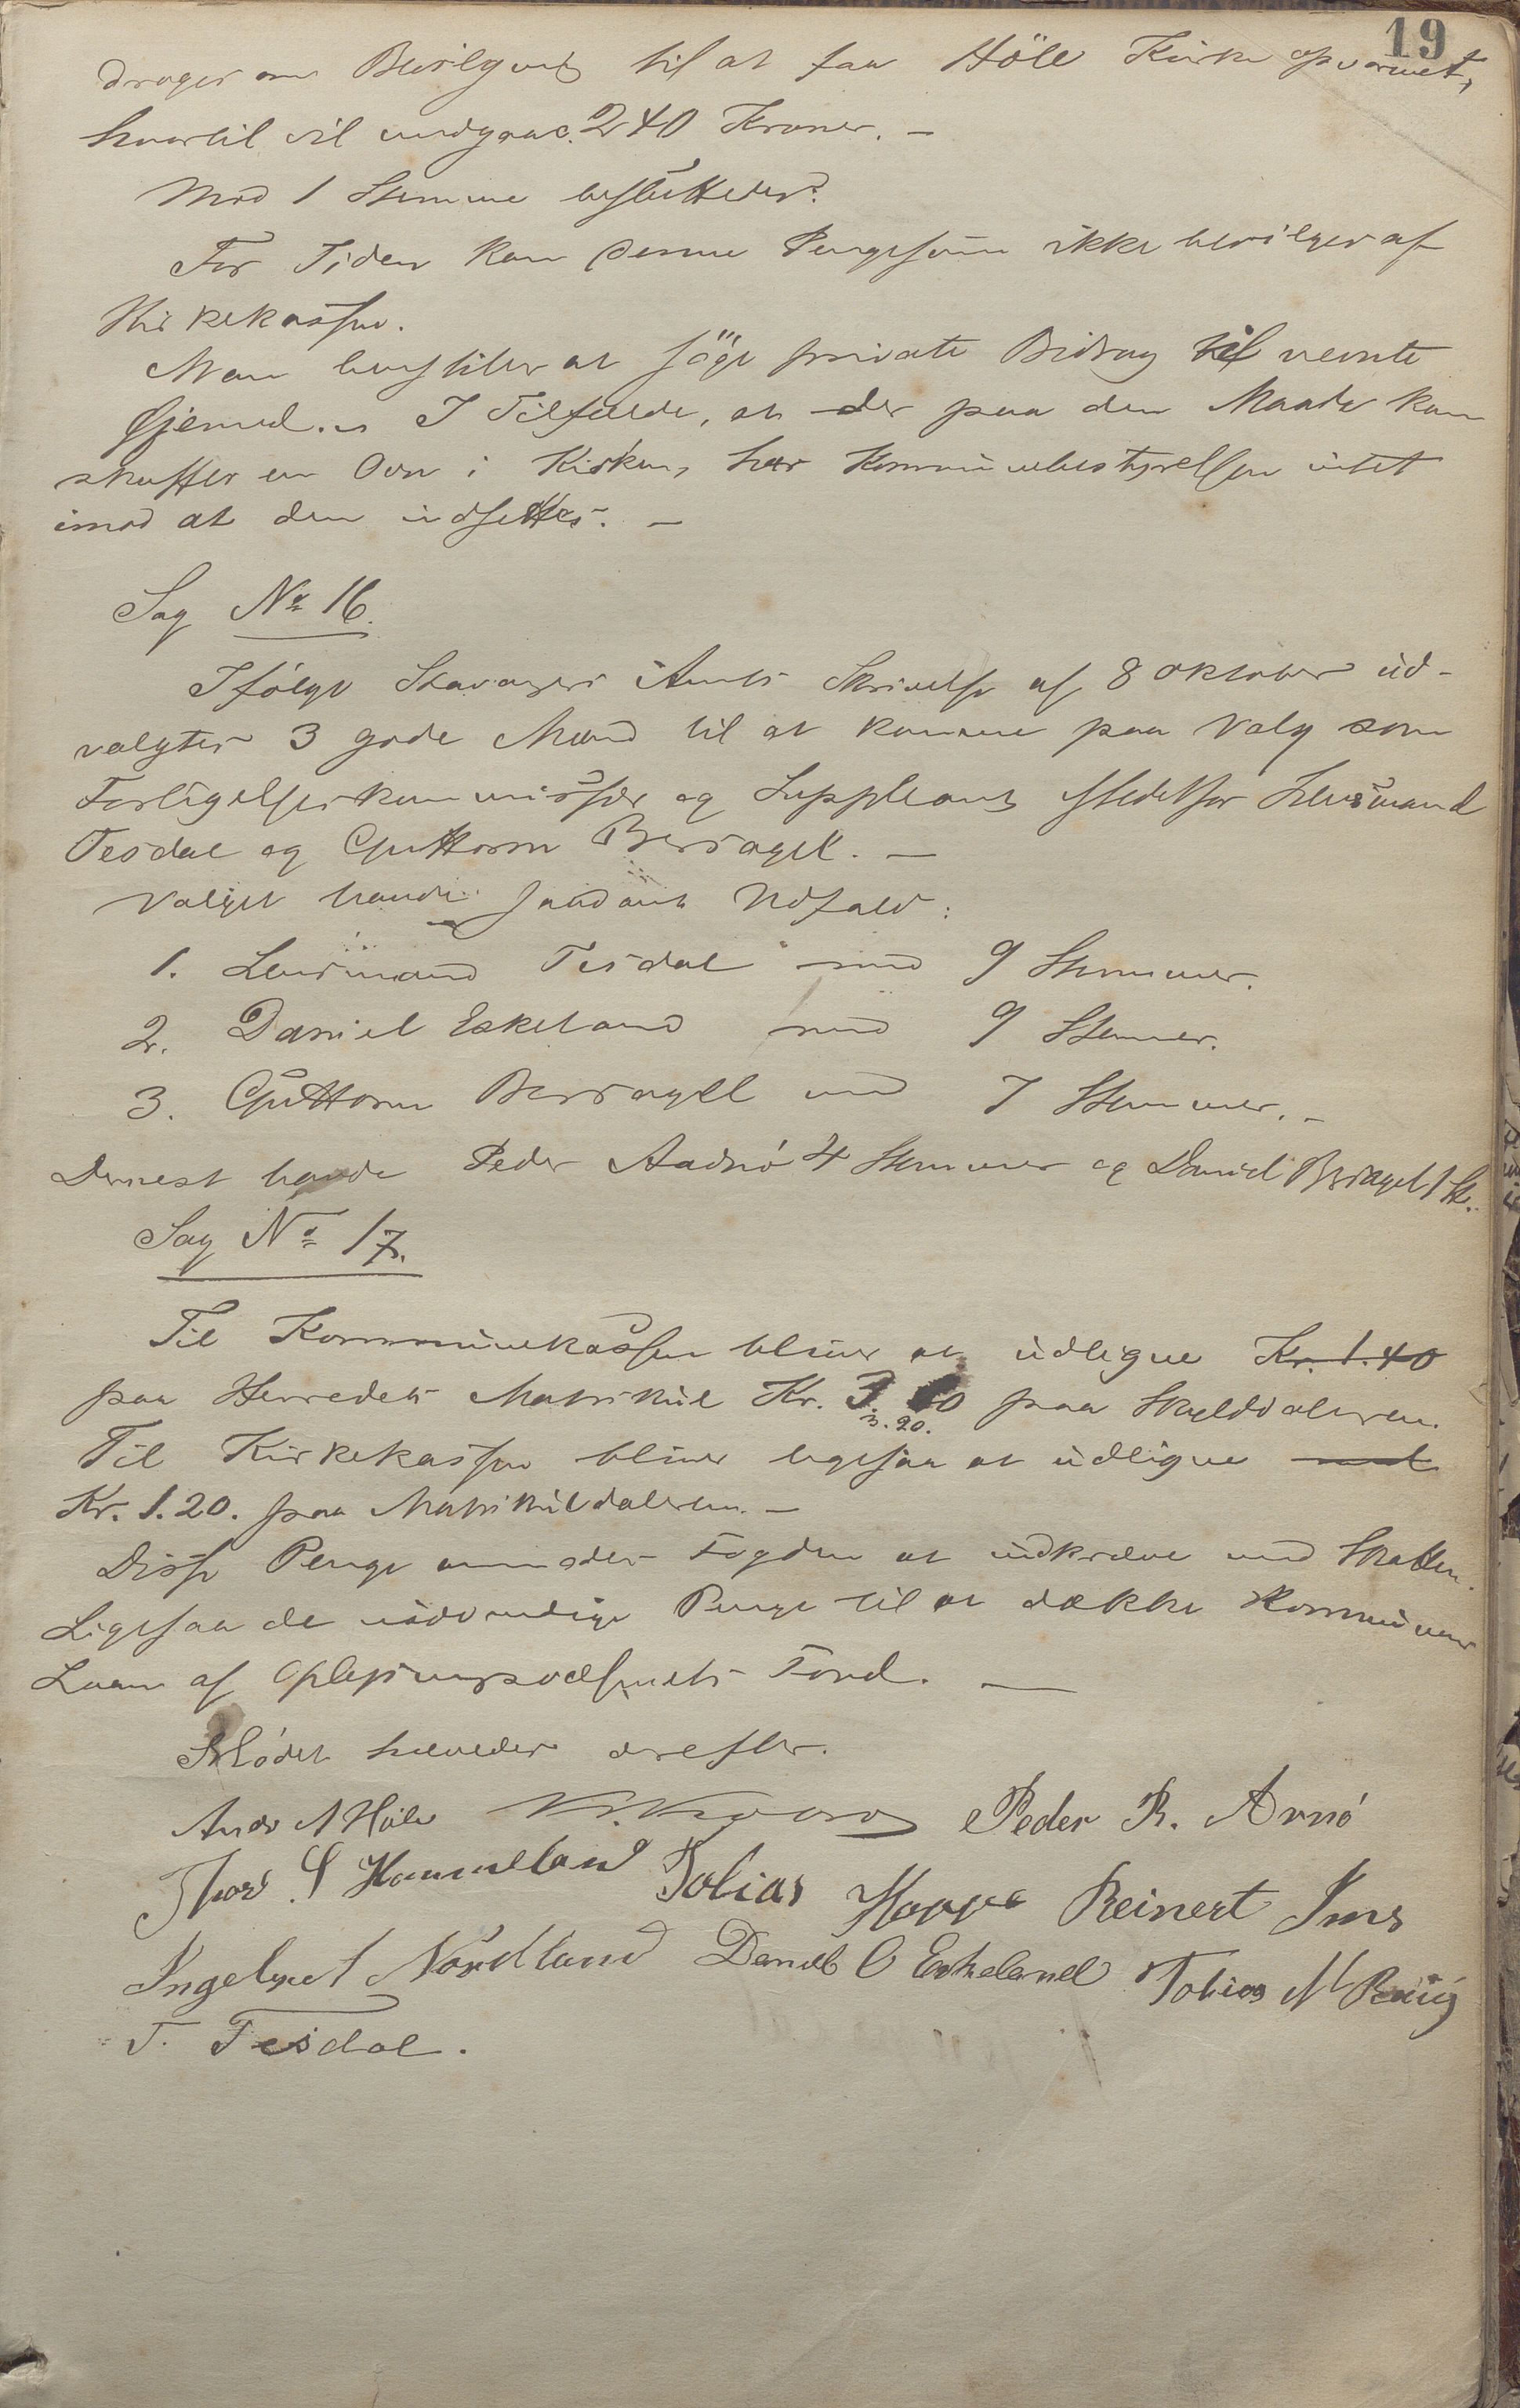 19
drager om Bevilgning til at faa Höle Kirke opvarmet,
hvortil vil medgaa c. 240 Kroner. –
Mod 1 Stemme besluttedes:
For Tiden kan denne Pengesum ikke bevilges af
Kirkekassen.
Man henstiller at søge private Bidrag til nevnte
Øjemed. I Tilfælde, at der paa den Maade kan
skaffes en Ovn i Kirken, har Kommunebestyrelsen intet
imod at den indsettes. –
Sag No 16.
Ifølge Stavanger Amts Skrivelse af 8 oktober ud-
valgtes 3 gode Mænd til at komme paa Valg som
Forligelseskommissær og Suppleant istedetfor Lensmand
Tesdal og Guttorm Bersagel. –
Valget havde saadant Udfald:
1. Lensmand Tesdal med 9 Stemmer.
2. Daniel Eskeland med 9 Stemmer.
3. Guttorm Bersagel med 7 Stemmer. –
Dernest havde Peder Aadnö 4 Stemmer og Daniel Bersagel 1 St.
Sag No 17.
Til Kommunekassen bliver at udligne Kr. 1.40
paa Herredets Matrikul Kr. 3.20. paa Skylddaleren.
Til Kirkekassen bliver ligesaa at udligne
Kr. 1.20. paa Matrikuldaleren. –
Disse Penge anmodes Fogden at indkræve med Skatten.
Ligesaa de nödvendige Penge til at dække Kommunens
Laan af Oplysningsvæsenets Fond. –
Mödet hævedes derefter.
Andr A Höle Peder R. Arnö
Thore S Hommeland Tobias Hoppe Reinert Ims
Ingebret Nordland Daniel O Eskeland Tobias N
T. Tesdal.